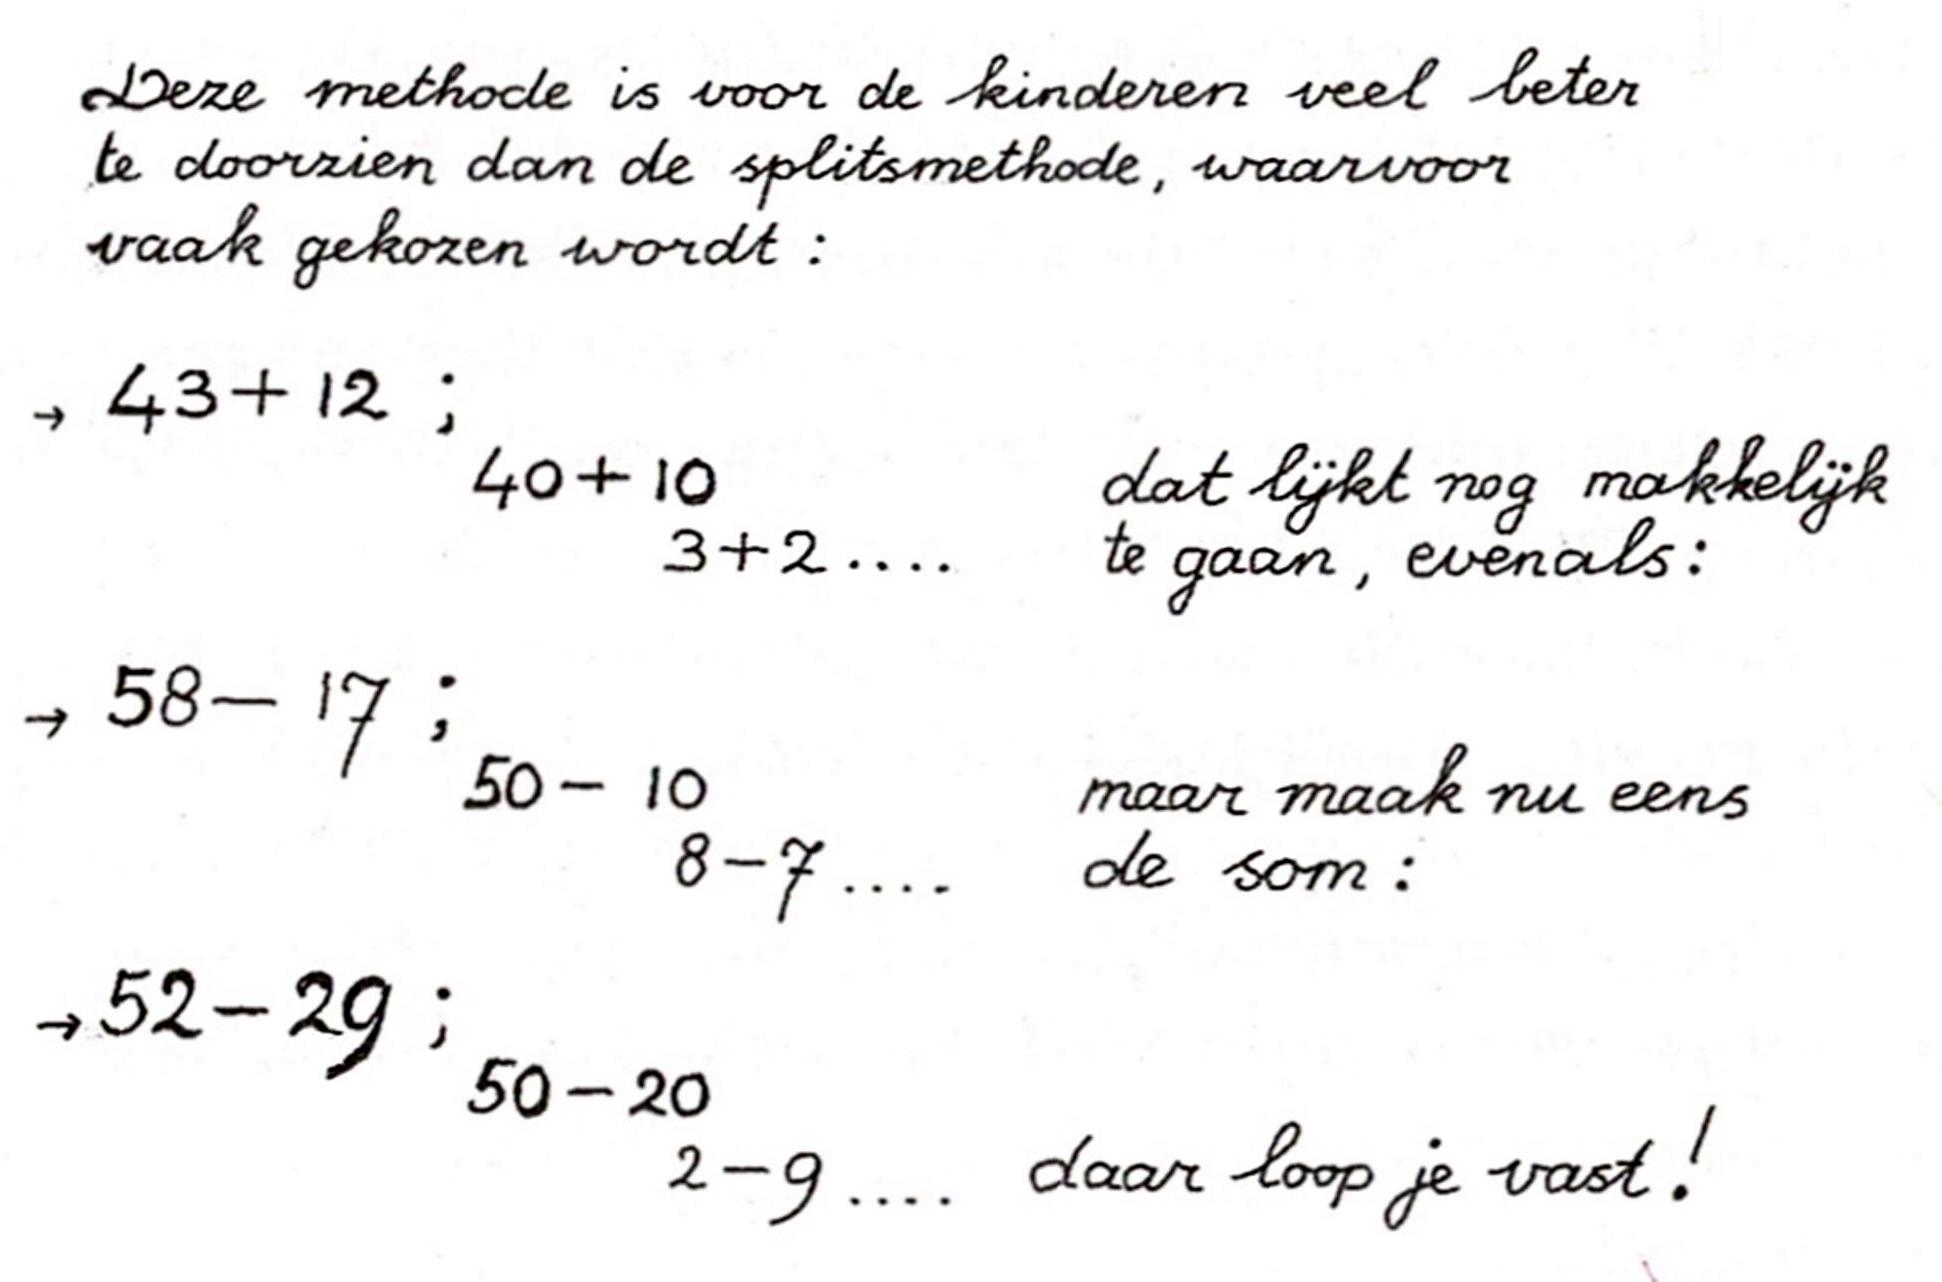 Deze methode is voor de kinderen veel beter
te doorzien dan de splitsmethode, waarvoor
vaak gekozen wordt :
→ 43 + 12 ;
40 + 10
3 + 2 ....
dat lijkt nog makkelijk
te gaan, evenals :
→ 58 – 17 ;
50 – 10
8 – 7 ....
maar maak nu eens
de som :
→ 52 – 29 ;
50 – 20
2 – 9 .... daar loop je vast !